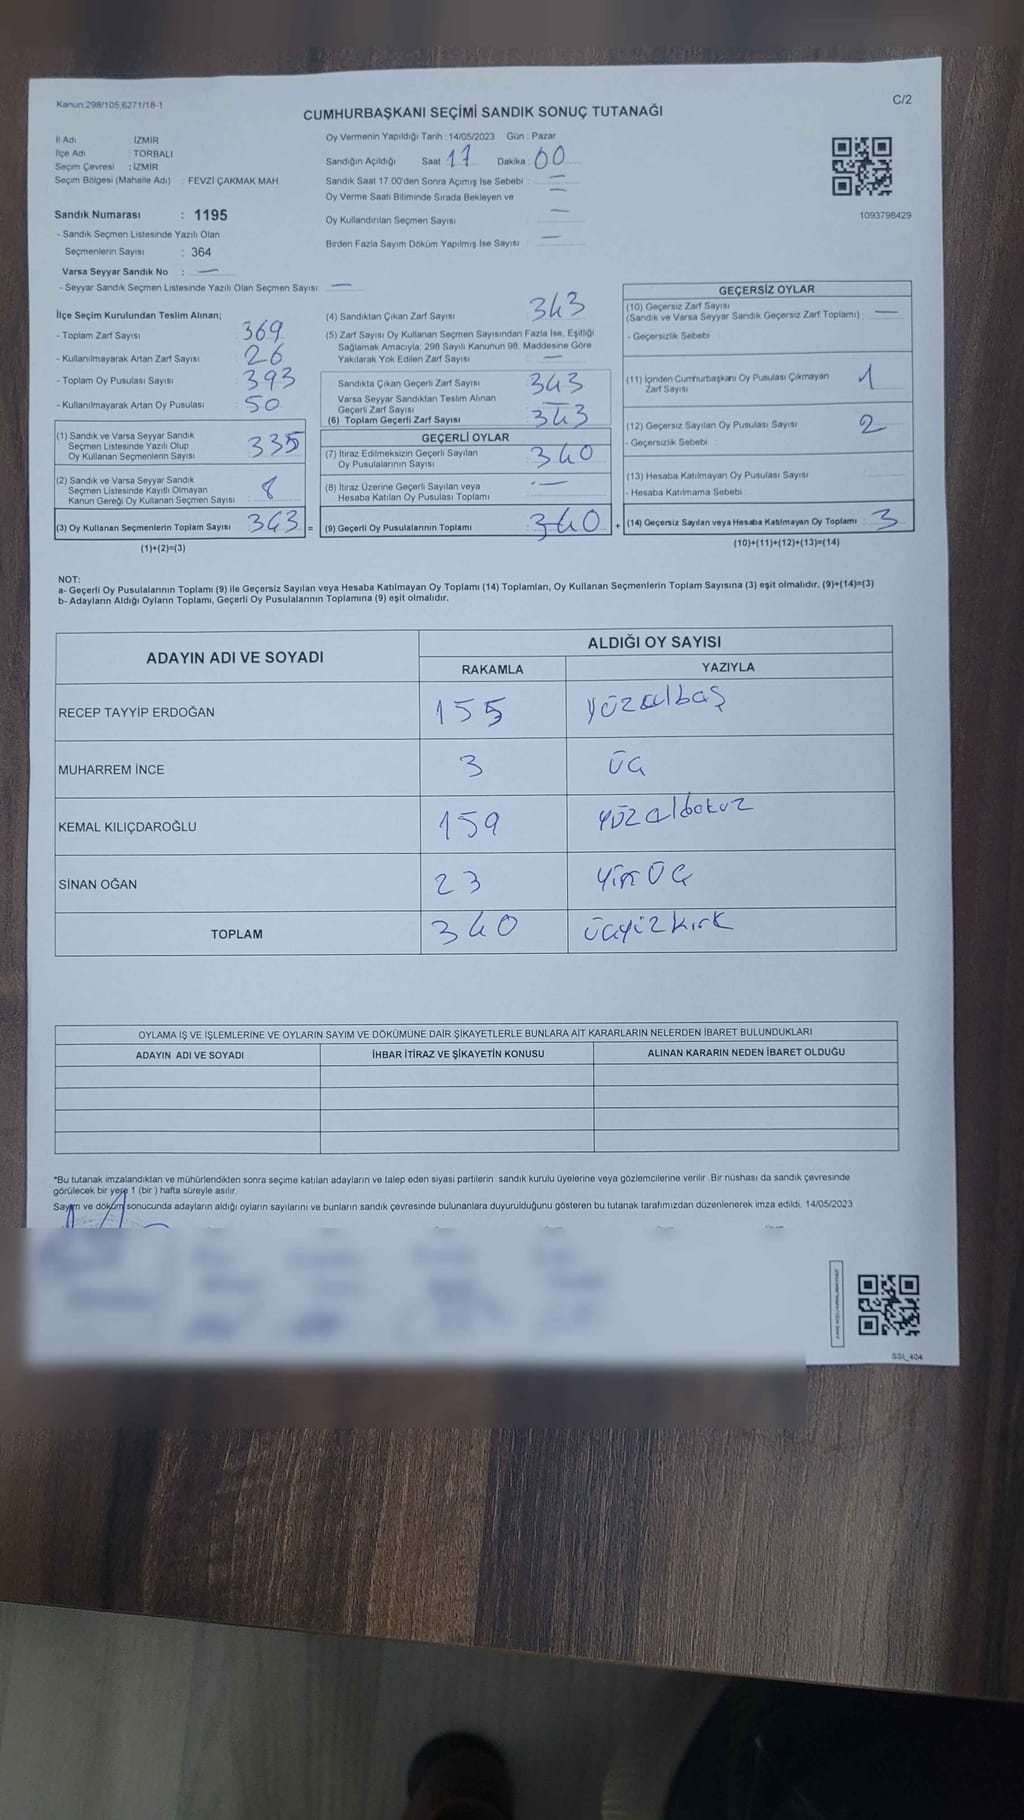 Kanun:298/105,6271/18-1
C/2
CUMHURBAŞKANI SEÇİMİ SANDIK SONUÇ TUTANAĞI
İl Adı İZMİR
İlçe Adı : TORBALI
Seçim Çevresi : İZMİR
Seçim Bölgesi (Mahalle Adı) : FEVZİ ÇAKMAK MAH.
Sandık Numarası : 1195
- Sandık Seçmen Listesinde Yazılı Olan
Seçmenlerin Sayısı : 364
Varsa Seyyar Sandık No : —
- Seyyar Sandık Seçmen Listesinde Yazılı Olan Seçmen Sayısı: —
Oy Vermenin Yapıldığı Tarih : 14/05/2023 Gün : Pazar
Sandığın Açıldığı Saat : 17 Dakika : 00
Sandık Saat 17.00'den Sonra Açımış İse Sebebi : —
Oy Verme Saati Bitiminde Sırada Bekleyen ve —
Oy Kullandırılan Seçmen Sayısı —
Birden Fazla Sayım Döküm Yapılmış İse Sayısı : —
1093798429
İlçe Seçim Kurulundan Teslim Alınan;
- Toplam Zarf Sayısı : 369
- Kullanılmayarak Artan Zarf Sayısı : 26
- Toplam Oy Pusulası Sayısı : 393
- Kullanılmayarak Artan Oy Pusulası : 50
(1) Sandık ve Varsa Seyyar Sandık
Seçmen Listesinde Yazılı Olup
Oy Kullanan Seçmenlerin Sayısı : 335
(2) Sandık ve Varsa Seyyar Sandık
Seçmen Listesinde Kayıtlı Olmayan
Kanun Gereği Oy Kullanan Seçmen Sayısı : 8
(3) Oy Kullanan Seçmenlerin Toplam Sayısı : 343 =
(1)+(2)=(3)
(4) Sandıktan Çıkan Zarf Sayısı : 343
(5) Zarf Sayısı Oy Kullanan Seçmen Sayısından Fazla İse, Eşitliği
Sağlamak Amacıyla, 298 Sayılı Kanunun 98. Maddesine Göre
Yakılarak Yok Edilen Zarf Sayısı : —
Sandıkta Çıkan Geçerli Zarf Sayısı : 343
Varsa Seyyar Sandıktan Teslim Alınan
Geçerli Zarf Sayısı : —
(6) Toplam Geçerli Zarf Sayısı : 343
GEÇERLİ OYLAR
(7) İtiraz Edilmeksizin Geçerli Sayılan
Oy Pusulalarının Sayısı : 340
(8) İtiraz Üzerine Geçerli Sayılan veya
Hesaba Katılan Oy Pusulası Toplamı : —
(9) Geçerli Oy Pusulalarının Toplamı : 340 +
GEÇERSİZ OYLAR
(10) Geçersiz Zarf Sayısı
(Sandık ve Varsa Seyyar Sandık Geçersiz Zarf Toplamı) : —
- Geçersizlik Sebebi :
(11) İçinden Cumhurbaşkanı Oy Pusulası Çıkmayan
Zarf Sayısı : 1
(12) Geçersiz Sayılan Oy Pusulası Sayısı : 2
- Geçersizlik Sebebi :
(13) Hesaba Katılmayan Oy Pusulası Sayısı :
- Hesaba Katılmama Sebebi :
(14) Geçersiz Sayılan veya Hesaba Katılmayan Oy Toplamı : 3
(10)+(11)+(12)+(13)=(14)
NOT:
a- Geçerli Oy Pusulalarının Toplamı (9) ile Geçersiz Sayılan veya Hesaba Katılmayan Oy Toplamı (14) Toplamları, Oy Kullanan Seçmenlerin Toplam Sayısına (3) eşit olmalıdır. (9)+(14)=(3)
b- Adayların Aldığı Oyların Toplamı, Geçerli Oy Pusulalarının Toplamına (9) eşit olmalıdır.
ADAYIN ADI VE SOYADI ALDIĞI OY SAYISI
RAKAMLA YAZIYLA
RECEP TAYYİP ERDOĞAN 155 yüzelbaş
MUHARREM İNCE 3 üç
KEMAL KILIÇDAROĞLU 159
SİNAN OĞAN 23
TOPLAM 340 üçyüzkırk
OYLAMA İŞ VE İŞLEMLERİNE VE OYLARIN SAYIM VE DÖKÜMÜNE DAİR ŞİKAYETLERLE BUNLARA AİT KARARLARIN NELERDEN İBARET BULUNDUKLARI
ADAYIN ADI VE SOYADI İHBAR İTİRAZ VE ŞİKAYETİN KONUSU ALINAN KARARIN NEDEN İBARET OLDUĞU
*Bu tutanak imzalandıktan ve mühürlendikten sonra seçime katılan adayların ve talep eden siyasi partilerin sandık kurulu üyelerine veya gözlemcilerine verilir. Bir nüshası da sandık çevresinde
görülecek bir yere 1 (bir ) hafta süreyle asılır.
Sayım ve döküm sonucunda adayların aldığı oyların sayılarını ve bunların sandık çevresinde bulunanlara duyurulduğunu gösteren bu tutanak tarafımızdan düzenlenerek imza edildi. 14/05/2023
SSI_404